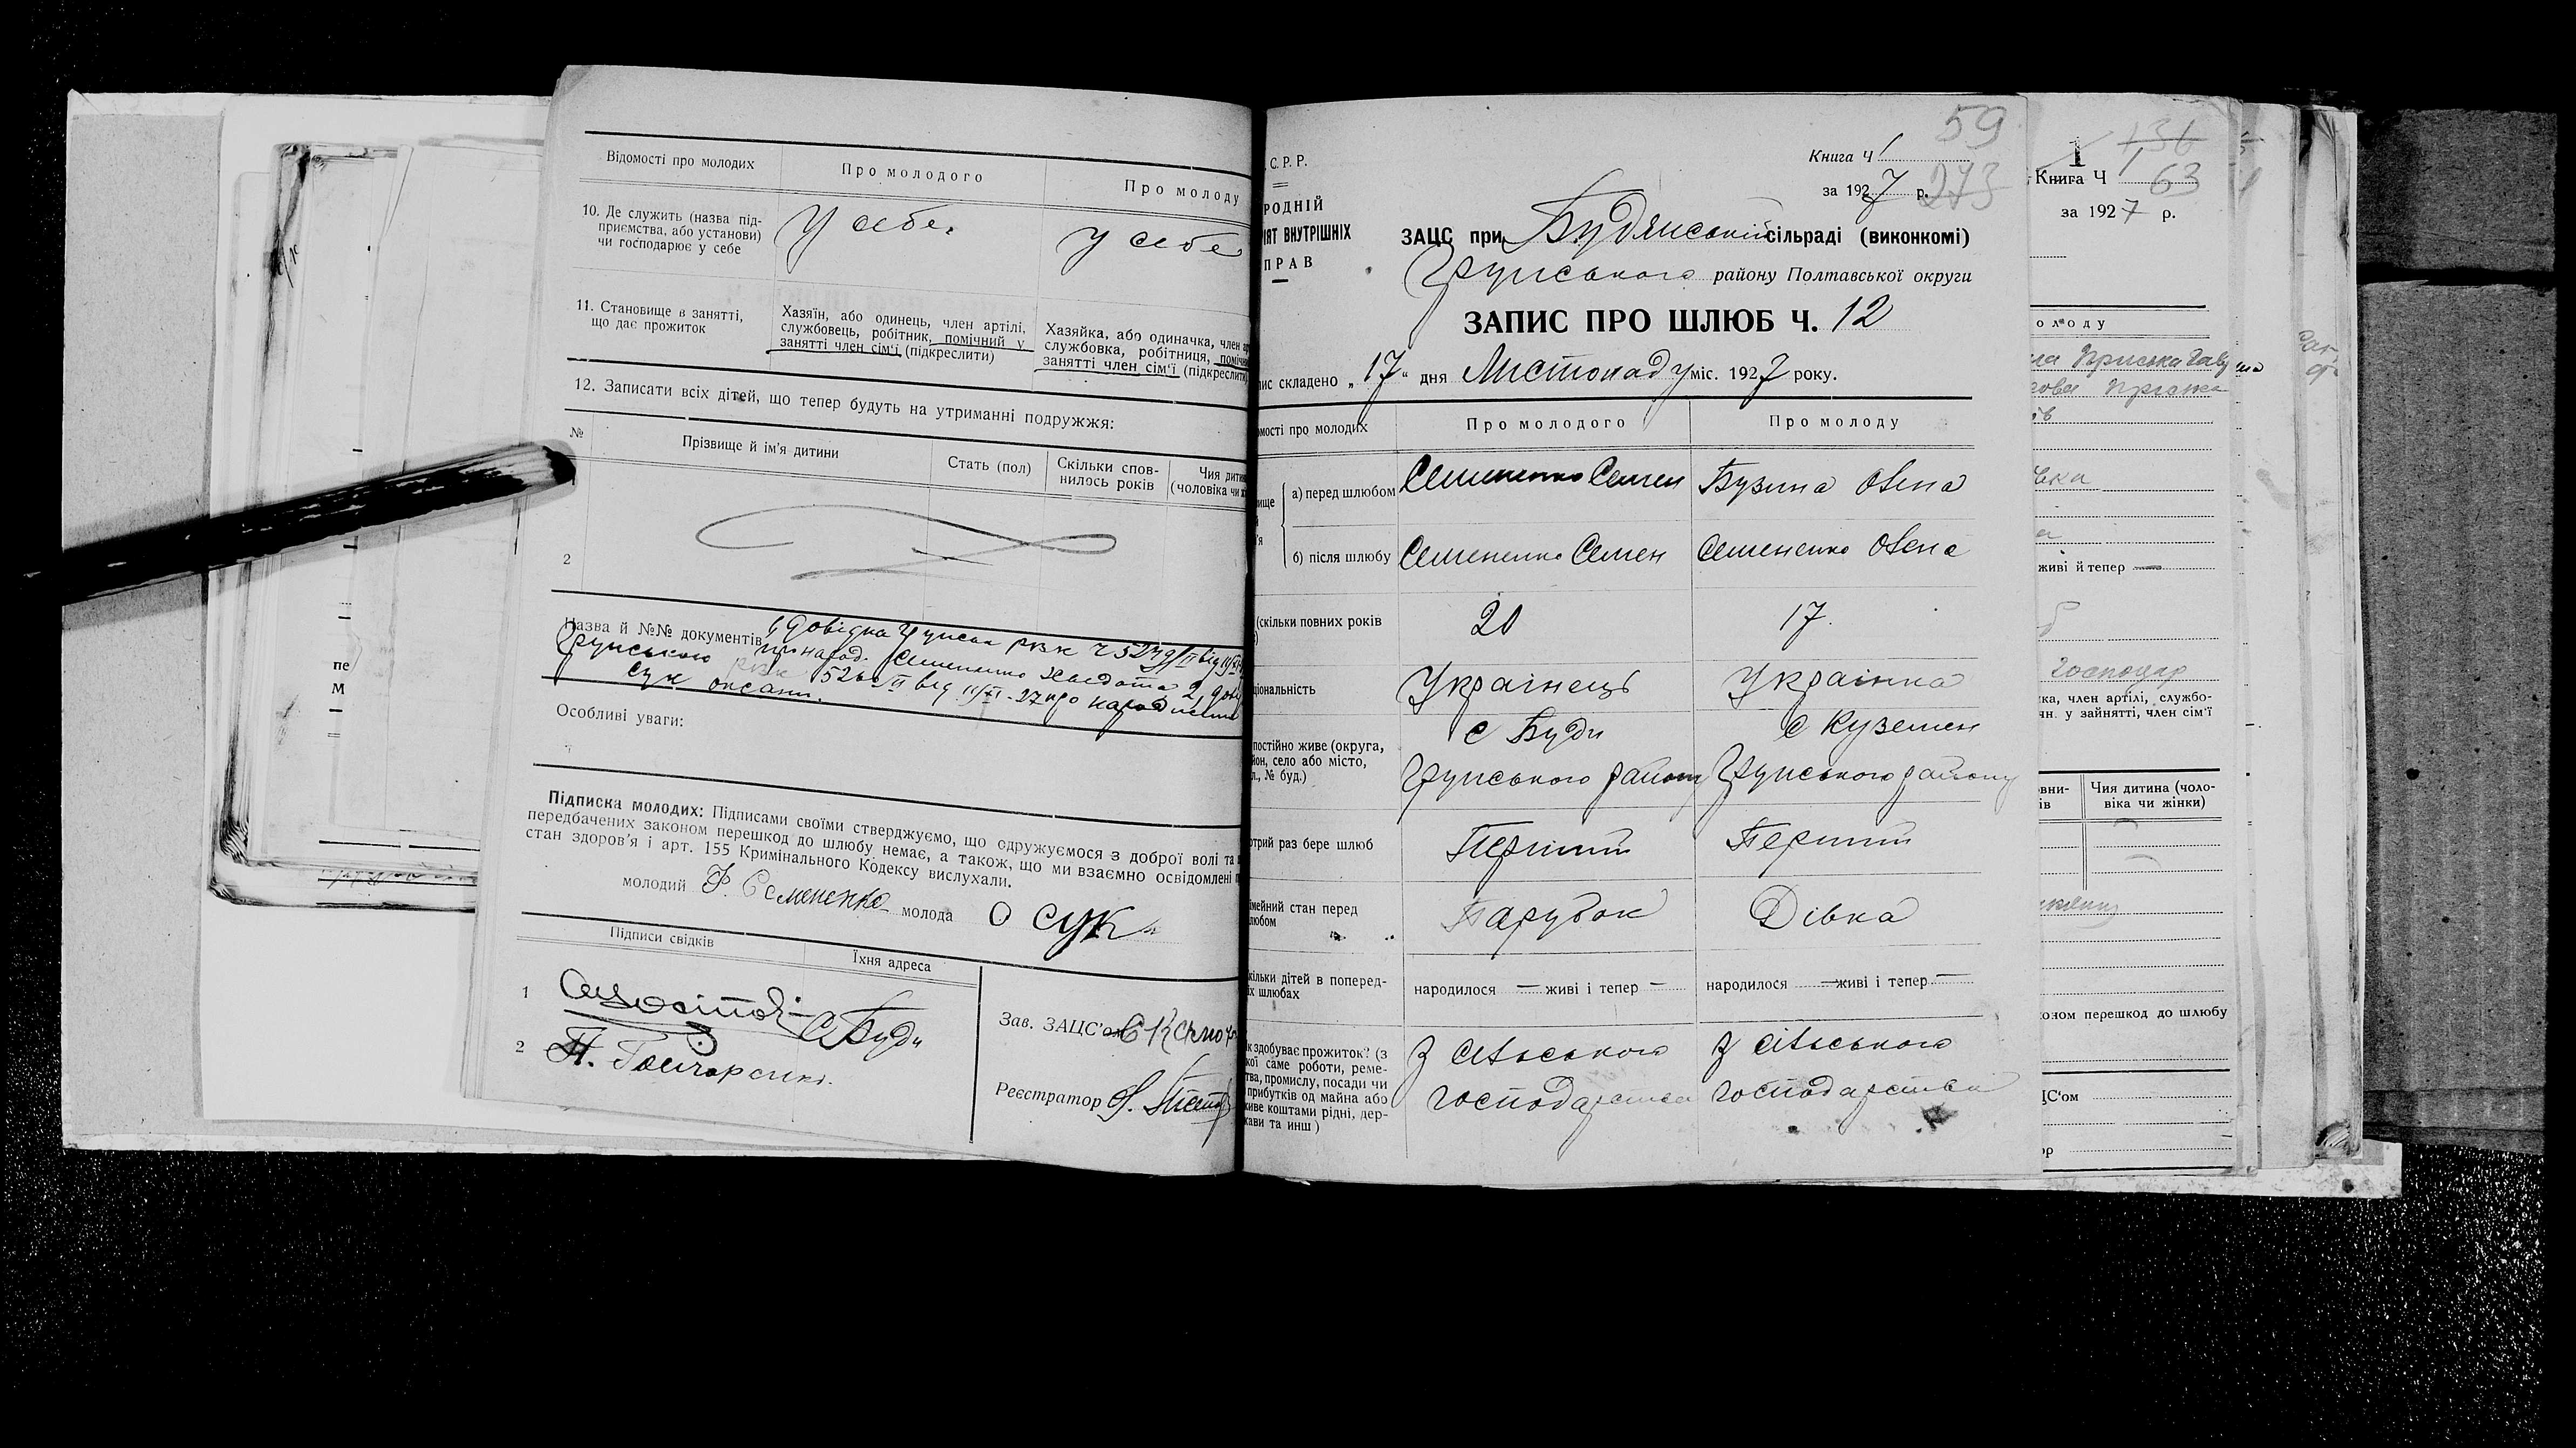 Відомості про молодих
Про молодого
Про молоду
10. Де служить (назва під-
приємства, або установи)
чи господарює у себе
У себе.
У себе
11. Становище в занятті,
що дає прожиток
Хазяїн, або одинець, член артілі,
службовець, робітник, помічний у
занятті член сім'ї (підкреслити)
Хазяйка, або одиначка, член ар
службовка, робітниця, поміч
занятті член сім'ї (підкреслити
12. Записати всіх дітей, що тепер будуть на утриманні подружжя:
№
Прізвище й ім'я дитини
Стать (пол)
Скільки спов-
нилось років
Чия дитин
(чоловіка чи ж
2
Назва й №№ документів: 1, Довідка Грунськ РВК Ч 5279/II від 11/XI
про народ. Семененко Хведота 2, дов
Грунського РВК 526 II від 11/XI-27 про народження
Сук Оксани.
Особливі уваги:
Підписка молодих: Підписами своїми стверджуємо, що одружуємося з доброї волі та
передбачених законом перешкод до шлюбу немає, а також, що ми взаємно освідомлені п
стан здоров'я і арт. 155 Кримінального Кодексу вислухали.
молодий Ф. Семененко молода О Сук
Підписи свідків
Їхня адреса
1
С Буди
2 П. Гончаренко.
Зав. ЗАЦС'ом
Реєстратор
С. Р. Р.
РОДНІЙ
ІЯТ ВНУТРІШНІХ
ПРАВ
59
273
Книга Ч 1
за 1927 р.
ЗАЦС при Будянській сільраді (виконкомі)
Грунського району Полтавської округи
ЗАПИС ПРО ШЛЮБ Ч. 12
ис складено „17“ дня Листопаду міс. 1927 року.
омості про молодих
Про молодого
Про молоду
ище
а) перед шлюбом
Семененко Семен
Бузина Олена
б) після шлюбу
Семененко Семен
Семененко Олена
(скільки повних років
20
17.
ціональність
Украінець
Украінка
постійно живе (округа,
йон, село або місто,
л., № буд.)
с Буди
Грунського району
с Куземен
Грунського району
отрий раз бере шлюб
Перший
Перший
імейний стан перед
любом
Парубок
Дівка
кільки дітей в поперед-
іх шлюбах
народилося — живі і тепер —
народилося — живі і тепер —
к здобуває прожиток? (з
кої саме роботи, реме-
тва, промислу, посади чи
прибутків од майна або
живе коштами рідні, дер-
жави та инш)
З сільського
господарства
З сільського
господарства
1
136
Книга Ч 1
63
за 1927 р.
олоду
Приська
живі й тепер —
Господар
ка, член артілі, службо-
чн. у зайнятті, член сім'ї
овни-
ів
Чия дитина (чоло-
віка чи жінки)
оном перешкод до шлюбу
ЦС'ом
ор
пе
М